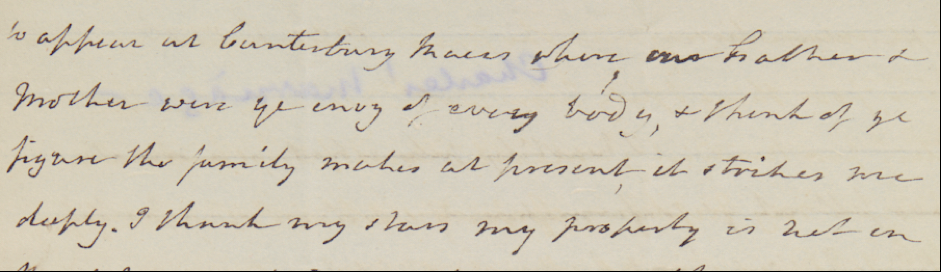 to appear at Canterbury Races where our Father &
Mother were ye envy of every body, & think of ye
figure the family makes at present, it strikes me
deeply. I thank my stars my property is not in